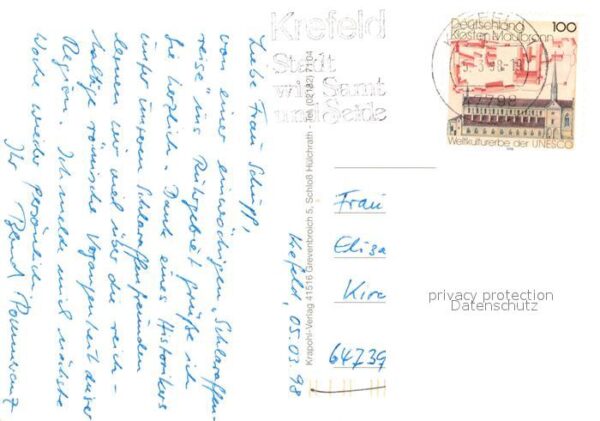 Krefeld, 05.03.98
Liebe Frau Schupp,
von einer einwöchigen "Schlaraffen-
reise" ins Ruhrgebiet grüße ich
Sie herzlich. Dank eines Historikers
unter unseren Schlaraffenfreunden
lernen wir viel über die reich-
haltige römische Vergangenheit dieser
Region. Ich melde mich nächste
Woche wieder persönlich.
Ihr Bernd
Krapohl-Verlag 41516 Grevenbroich 5, Schloß Hülchrath - Tel. (02182) 7104
Krefeld
Stadt
wie Samt
und Seide
Deutschland 100
Kloster Maulbronn
Weltkulturerbe der UNESCO
Frau
Elisa
Kirc
64739
privacy protection
Datenschutz